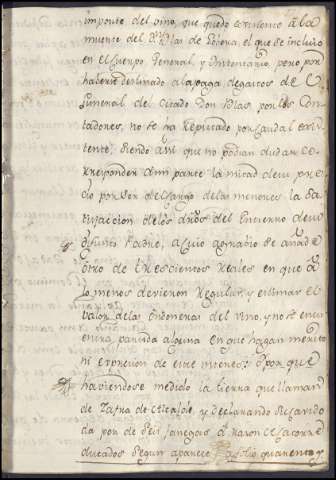 importe del vino, que quedo existente a la
muerte del Dn Blas de, el que se incluio
en el cuerpo General, y Ymbentario, pero por
haberse destinado a la paga de gastos de el
funeral de citado Don Blas por los Con
tadores, no se ha reputado por caudal exis
tente, siendo asi que no podian dudar co
rresponder a mi parte la mitad de su pre
cio por ser del cargo de las menores la sa
tisfaccion de los dros del Entierro de su
difunto Padre, a cuio agravio se añade
otro de trescientos Reales en que a
lo menos devieron regular, y estimar el
valor de las del vino, y no se encu
entra partida alguna en que hagan merito
ni expresion de este: porque
haviendose medido la tierra que llaman
de Zafra de, y declarando ser cavida
la por de seis fanegas al razon de
ducados segun aparece al folio quarenta y